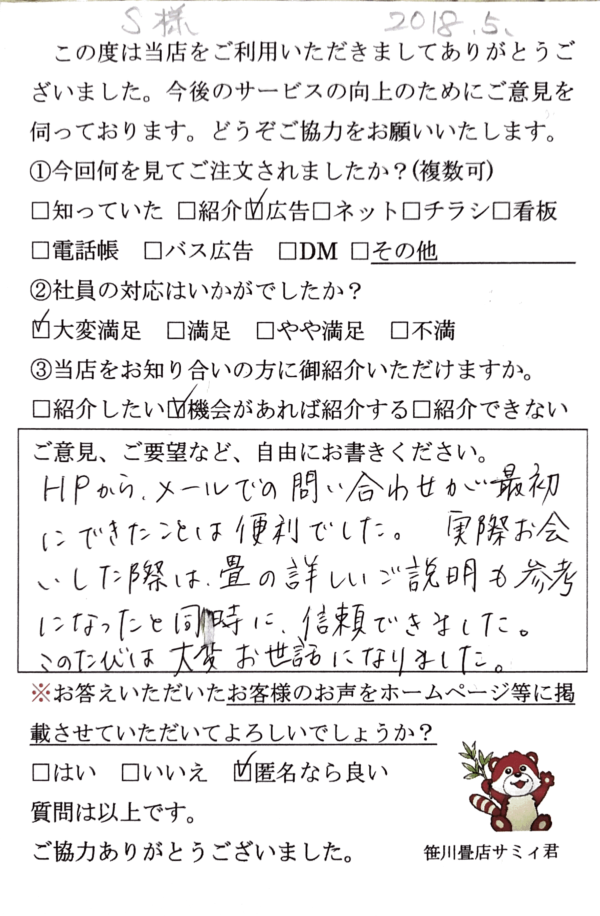 S様 2018.5.
この度は当店をご利用いただきましてありがとうご
ざいました。今後のサービスの向上のためにご意見を
伺っております。どうぞご協力をお願いいたします。
①今回何を見てご注文されましたか？(複数可)
□知っていた □紹介☑広告□ネット□チラシ□看板
□電話帳 □バス広告 □DM □その他
②社員の対応はいかがでしたか？
☑大変満足 □満足 □やや満足 □不満
③当店をお知り合いの方に御紹介いただけますか。
□紹介したい☑機会があれば紹介する□紹介できない
ご意見、ご要望など、自由にお書きください。
HPから、メールでの問い合わせが最初
にできたことは便利でした。 実際お会
いした際は、畳の詳しいご説明も参考
になったと同時に、信頼できました。
このたびは大変お世話になりました。
※お答えいただいたお客様のお声をホームページ等に掲
載させていただいてよろしいでしょうか？
□はい □いいえ ☑匿名なら良い
質問は以上です。
ご協力ありがとうございました。
笹川畳店サミィ君